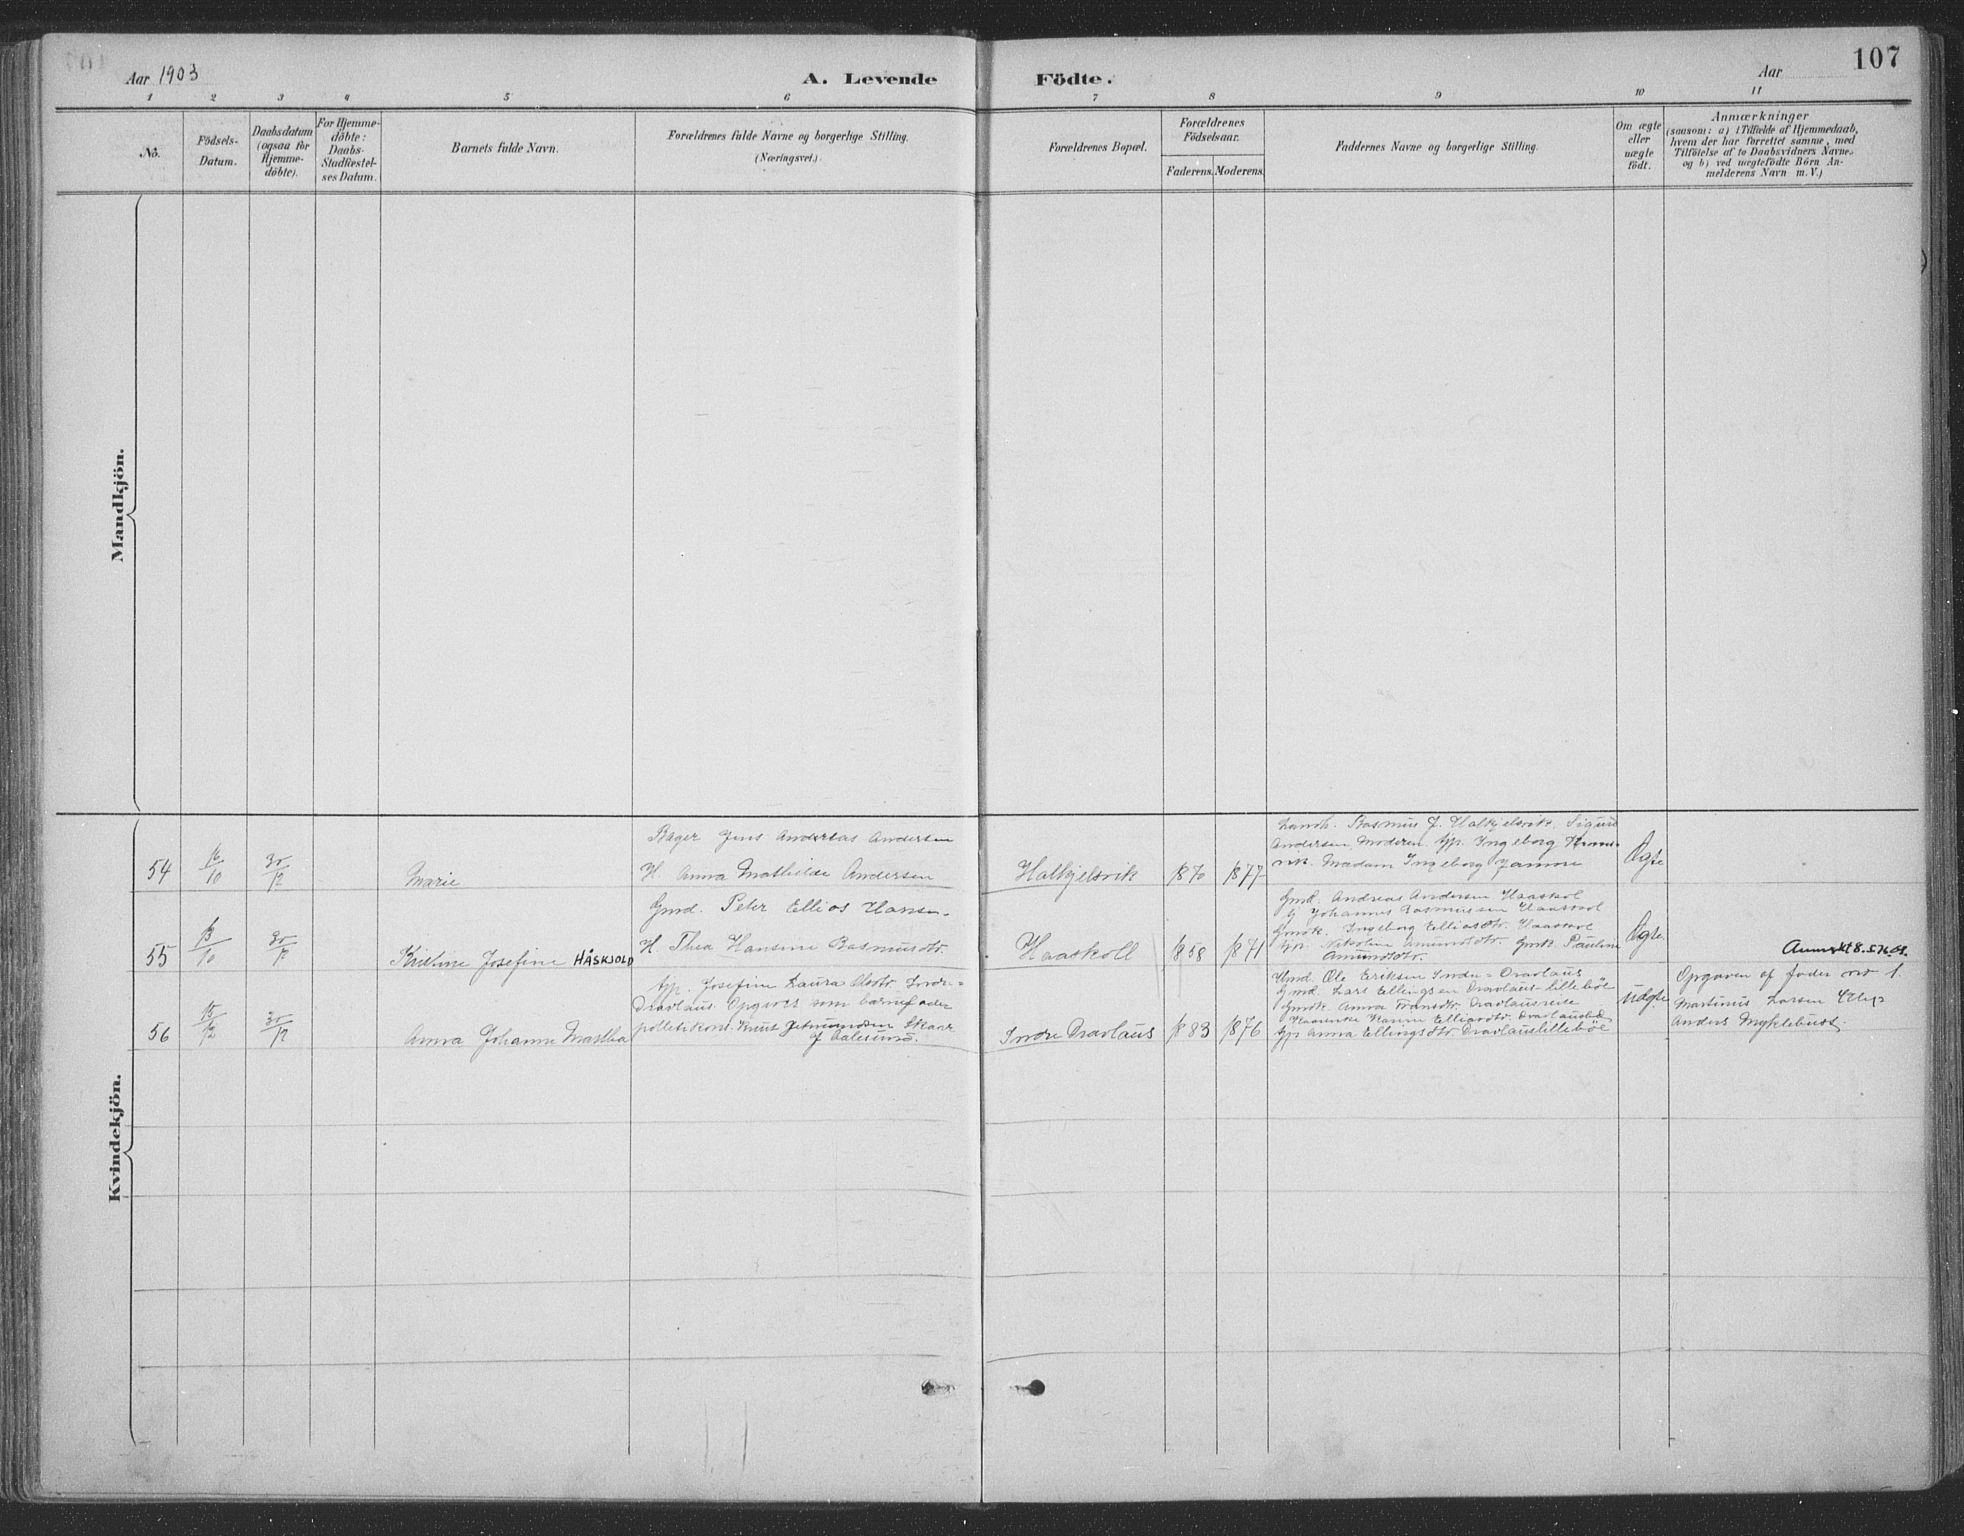 107
Aar 1903
A. Levende Födte.
Aar
1 2 3 4 5 6 7 8 9 10 11
No.
Födsels-
Datum.
Daabsdatum
(ogsaa for
Hjemme-
döbte).
For Hjemme-
döbte:
Daabs-
Stadfæstel-
ses Datum.
Barnets fulde Navn.
Forældrenes fulde Navne og borgerlige Stilling.
(Næringsvei.)
Forældrenes Bopæl.
Forældrenes
Födselsaar.
Faderens. Moderens.
Faddernes Navne og borgerlige Stilling.
Om ægte
eller
uægte
födt.
Anmærkninger
(saasom: a) i Tilfælde af Hjemmedaab,
hvem der har forrettet samme, med
Tilföielse af to Daabsvidners Navne,
og b) ved uægtefödte Börn An-
melderens Navn m. V.)
Mandkjön.
Kvindekjön.
54
16/10
30/12
Marie
Bager Jens Andreas Andersen
H. Anna Mathilde Andersen
Halkjelsvik
1870
1877
Landh. Rasmus J. Halkjelsvik, Sigurd
Andersen Moderen Gp. Ingeborg
Madam Ingeborg
Ægte
55
13/10
30/12
Kristine Josefine HÅSKJOLD
Gmd. Peter Ellias Hansen
H. Thea Hansine Rasmusdtr.
Haaskoll
1858
1871
Gmd. Andreas Andersen Haaskol
Johannes Rasmussen Haaskol
Gmdk. Ingeborg Elliasdtr. Haaskol
Gp. Nikoline Amundsdtr. Gmdk. Pauline
Amundsdtr.
Ægte
56
15/12
30/12
Anna Johanne Mathea
Gp. Josefine Laura Indre-
Dravlaus. Opgivet som barnefader
Knut Skaar
f Aalesund.
Indre Dravlaus
1883
1876
Gmd. Ole Eriksen Indre-Dravlaus
Gmd. Lars Ellingsen Dravlaus-lilleböe
Gmdk. Anna
Karine Elliasdtr.
Gp Anna Ellingsdtr. Dravlauslilleböe
Uægte
Opgaven af fader no 1.
Martinus Larsen
Anders Myklebust.